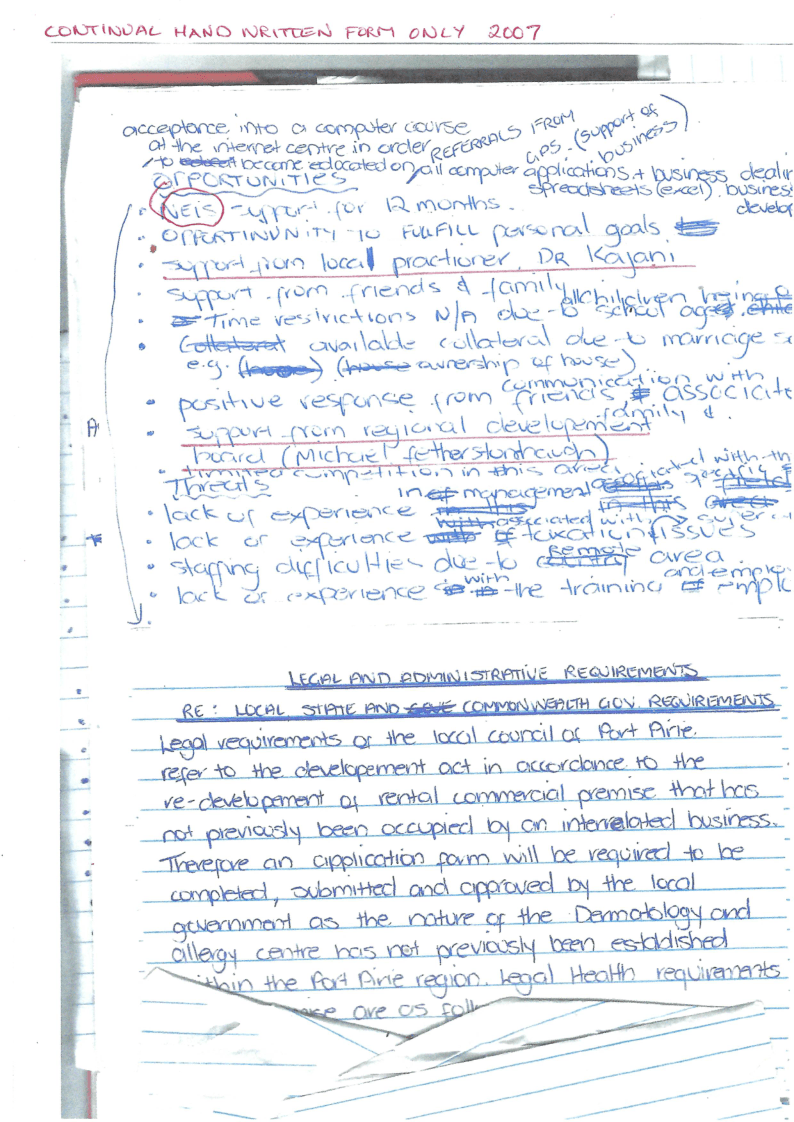 CONTINUAL HAND WRITTEN FORM ONLY 2007
acceptance into a computer course
at the internet centre in order REFERRALS FROM
GPS. (support of business)
to become edocated on all computer applications + business dealin
spreadsheets (excel). busines
develop
OPPORTUNITIES
• NEIS support for 12 months.
• OPPORTINUNITY to FULLFILL personal goals
• support from local practioner, DR Kajani
support from friends & family
• Time restrictions N/A due to school age
all children being
• Collateral available collateral due to marriage s
e.g. (house) (house ownership of house)
communication with
• positive response from friends, & associcite
family &
A • support from regional developement
board (Michael fetherstonhaugh)
• limited competition in this area.
Threats
• lack of experience in management
associated with
• lack of experience of taxation issues
• staffing difficulties due to country area
Remote
and emplo
• lack of experience with the training of emplo
LEGAL AND ADMINISTRATIVE REQUIREMENTS
RE: LOCAL, STATE AND COMMONWEALTH GOV REQUIREMENTS
Legal requirements of the local council of Port Pirie.
refer to the developement act in accordance to the
re-developement of rental commercial premise that has
not previously been occupied by an interrelated business.
Therefore an application form will be required to be
completed, submitted and approved by the local
government as the nature of the Dermatology and
allergy centre has not previously been established
within the Port Pirie region. Legal Health requirements
are as foll